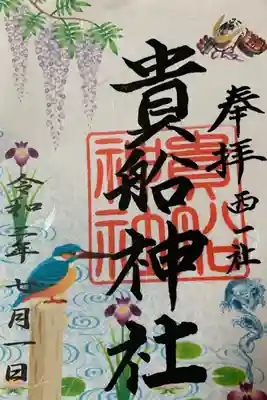 奉拝 西一社
貴船神社
貴船
神社
令和三年 七月一日